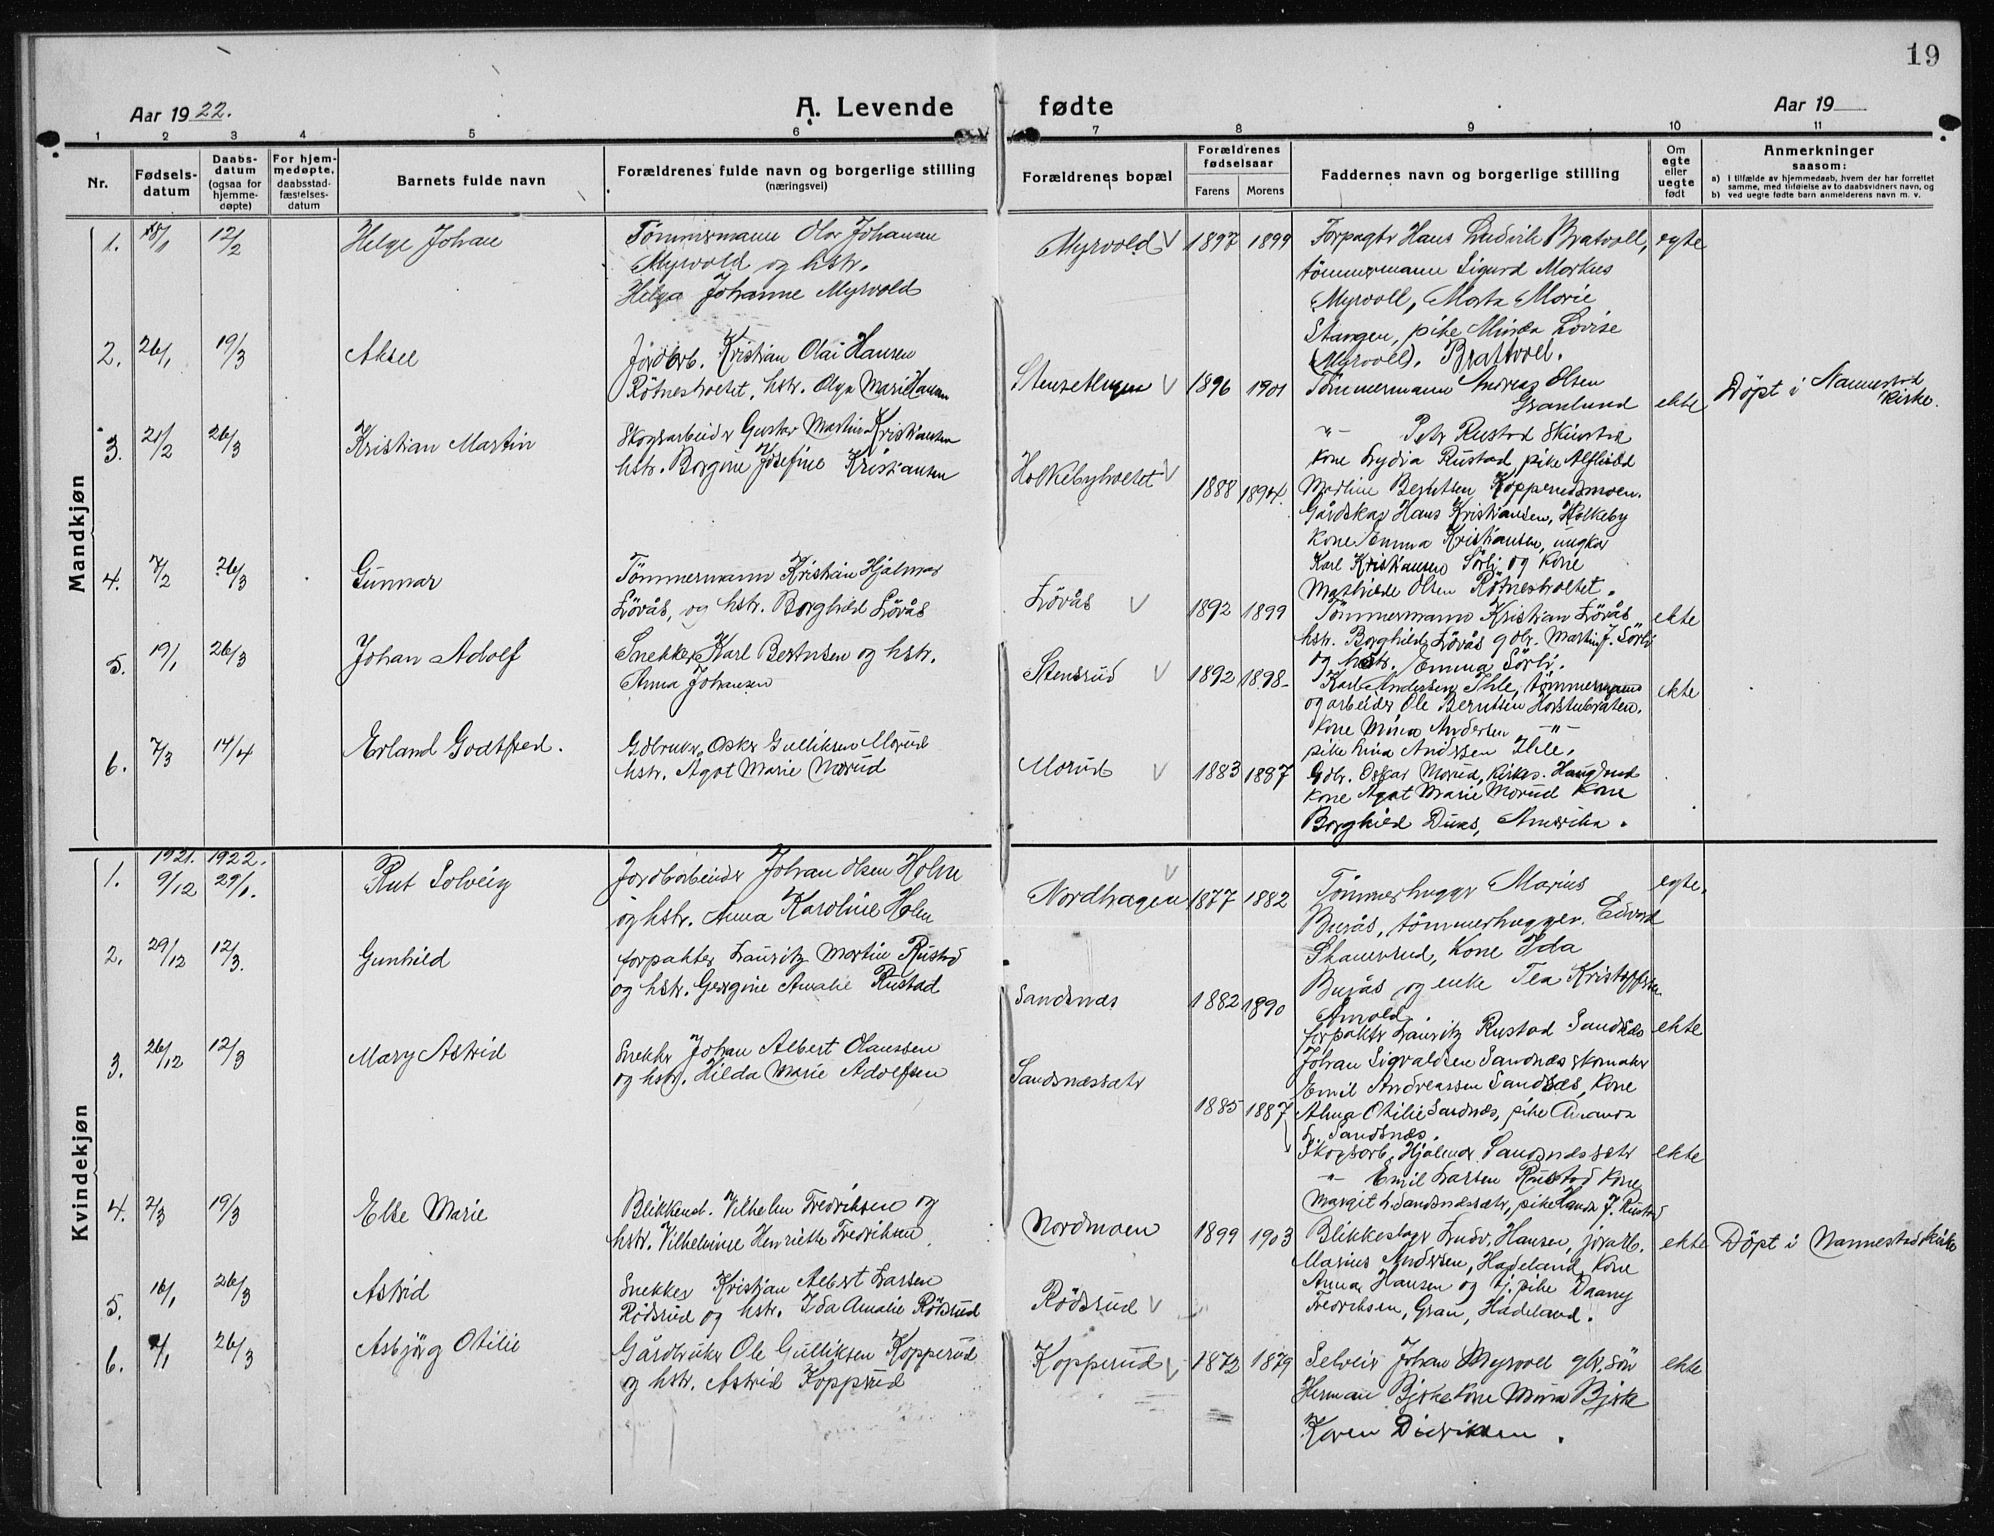 19
Aar 1922.
A. Levende fødte
Aar 19
1 2 3 4 5 6 7 8 9 10 11
Nr.
Fødsels-
datum
Daabs-
datum
(ogsaa for
hjemme-
døpte)
For hjem-
medøpte,
daabsstad-
fæstelses-
datum
Barnets fulde navn
Forældrenes fulde navn og borgerlige stilling
(næringsvei)
Forældrenes bopæl
Forældrenes
fødselsaar
Farens Morens
Faddernes navn og borgerlige stilling
Om
egte
eller
uegte
født
Anmerkninger
saasom:
a) I tilfælde av hjemmedaab, hvem der har forrettet
samme, med tilføielse av to daabsvidners navn, og
b) ved uegte fødte barn anmelderens navn m. v.
Mandkjøn
1. 18/1 12/2 Helge Johan
Tömmermann Olav Johansen
Myrvold og hstr.
Helga Johanne Myrvold
Myrvold 1897 1899
Forpagtr Hans Ludvik Bratvoll,
tömmermann Sigurd Markus
Myrvoll, Marta Marie
Stangen, pike Minda Lovise
Myrvoll, Brattvoll.
egte
2. 26/1 19/3 Aksel
Jordarb. Kristian Olai Hansen
Rötneshvetet, hstr. Olga Marie Hansen
1896 1901
Tömmermann Andreas Olsen
Granlund
-"- Petr Rustad
kone Lydia Rustad, pike Alfhild
Martine Berntsen Kopperudsmoen.
ekte
Döpt i Nannestad
kirke.
3. 21/2 26/3 Kristian Martin
Skogsarbeider Gustav Martin Kristiansen
hstr. Borgine Josefine Kristiansen
1888 1894.
Gårdskar Hans Kristiansen, Holkeby
kone Emma Kristiansen, ungkar
Karl Kristiansen Sörli og kone
Mathilde Olsen
4. 7/2 26/3 Gunnar
Tömmermann Kristian Hjalmar
Lövås, og hstr. Borghild Lövås
Lövås 1892 1899
Tömmermann Kristian Lövås
hstr. Borghild Lövås gdbr. Martin J. Sörli
og hstr. Emma Sörli.
ekte
5. 19/1 26/3 Johan Adolf
Snekker Karl Berntsen og hstr.
Anna Johansen
Stensrud 1892 1898-
Karl Andersen Ihle, tömmermann
og arbeider Ole Berntsen
kone Mina Andersen -"-
pike Lina Andersen Ihle.
ekte
6. 7/3 14/4 Erland Godtfred.
Gdbruker Oskar Gulliksen Morud
hstr. Agot Marie Morud
Morud 1883 1887
Gdbr. Oskar Morud, kirkes. Haugsrud
kone Agot Marie Morud kone
Borghild Duas, Amerika.
Kvindekjøn
1921. 1922.
1. 9/12 29/1. Rut Solveig
Jordarbeider Johan Olsen Holm
og hstr. Anna Karoline Holm
Nordhagen 1877 1882
Tömmerhuggr Marius
Burås, tömmerhugger Edvard
Skauerud, kone Ida
Burås og enke Tea Kristoffersen
egte.
2. 29/12 12/3. Gunhild
forpakter Lauritz Martin Rustad
og hstr. Georgine Amalie Rustad
Sandsnæs 1882 1890
forpaktr Lauritz Rustad Sandsnæs
Johan Sigvaldsen Sandnæs skomakr
Emil Andreassen Sandsæs, kone
Alma Otilie Sandnæs, pike Amanda
L. Sandsnæs.
ekte
3. 26/12 12/3 Mary Astrid
Snekkr Johan Albert Olaussen
og hstr. Hilda Marie Adolfsen
Sandsnæssætr
1885 1887
Skogsarb. Hjalmar Sandsnæssætr
-"- Emil Larsen Rustad kone
Margit L. Sandsnæssætr, pike Handa J. Rustad
ekte
4. 2/3 19/3 Else Marie
Blikkensl. Vilhelm Fredriksen og
hstr. Vilhelmine Henriette Fredriksen
Nordmoen 1899 1903
Blikkeslagr Ludv. Hansen, jorarb.
Marius Andersen, Hadeland, kone
Anna Hansen og tj. pike Daany
Fredriksen, Gran, Hadeland.
ekte
Döpt i Nannestad kirke
5. 16/1 26/3 Astrid
Snekker Kristian Albert Larsen
Rödsrud og hstr. Ida Amalie Rödsrud
Rödsrud
6. /1 26/3 Asbjörg Otilie
Gårdbruker Ole Gulliksen Kopperud
og hstr. Astrid Kopprud
Kopperud 1872 1879
Selveir Johan Myrvoll gbr. sön
Herman Bjerke kone Mina Bjerke
Karen Didriksen.
ekte